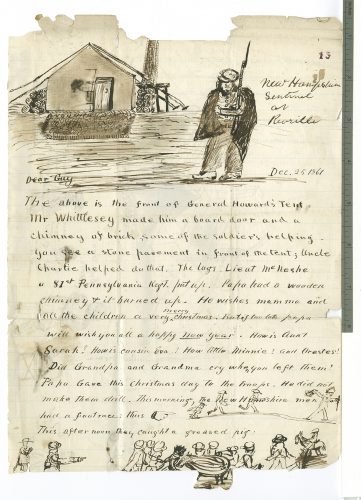 15
New Hampshire
Sentinel
at
Reveille
Dear Guy
Dec. 25 1861
The above is the front of General Howard's Tent
Mr Whittlesey made him a board door and a
chimney of brick, some of the soldiers helping.
You see a stone pavement in front of the tent; Uncle
Charlie helped do that. The logs. Lieut McHeshe
81st Pennsylvania Regt. put up. Papa had a wooden
chimney & it burned up. He wishes mamma and
all the children a very merry christmas. But if too late papa
will wish you all a happy new year. How is Aunt
Sarah! How is cousin Eva! How little Minnie! and Orestes!
Did Grandpa and Grandma cry when you left them?
Papa Gave this christmas day to the troops. He did not
make them drill. This morning, the New Hampshire men
had a footrace; this
This afternoon they caught a greased pig: